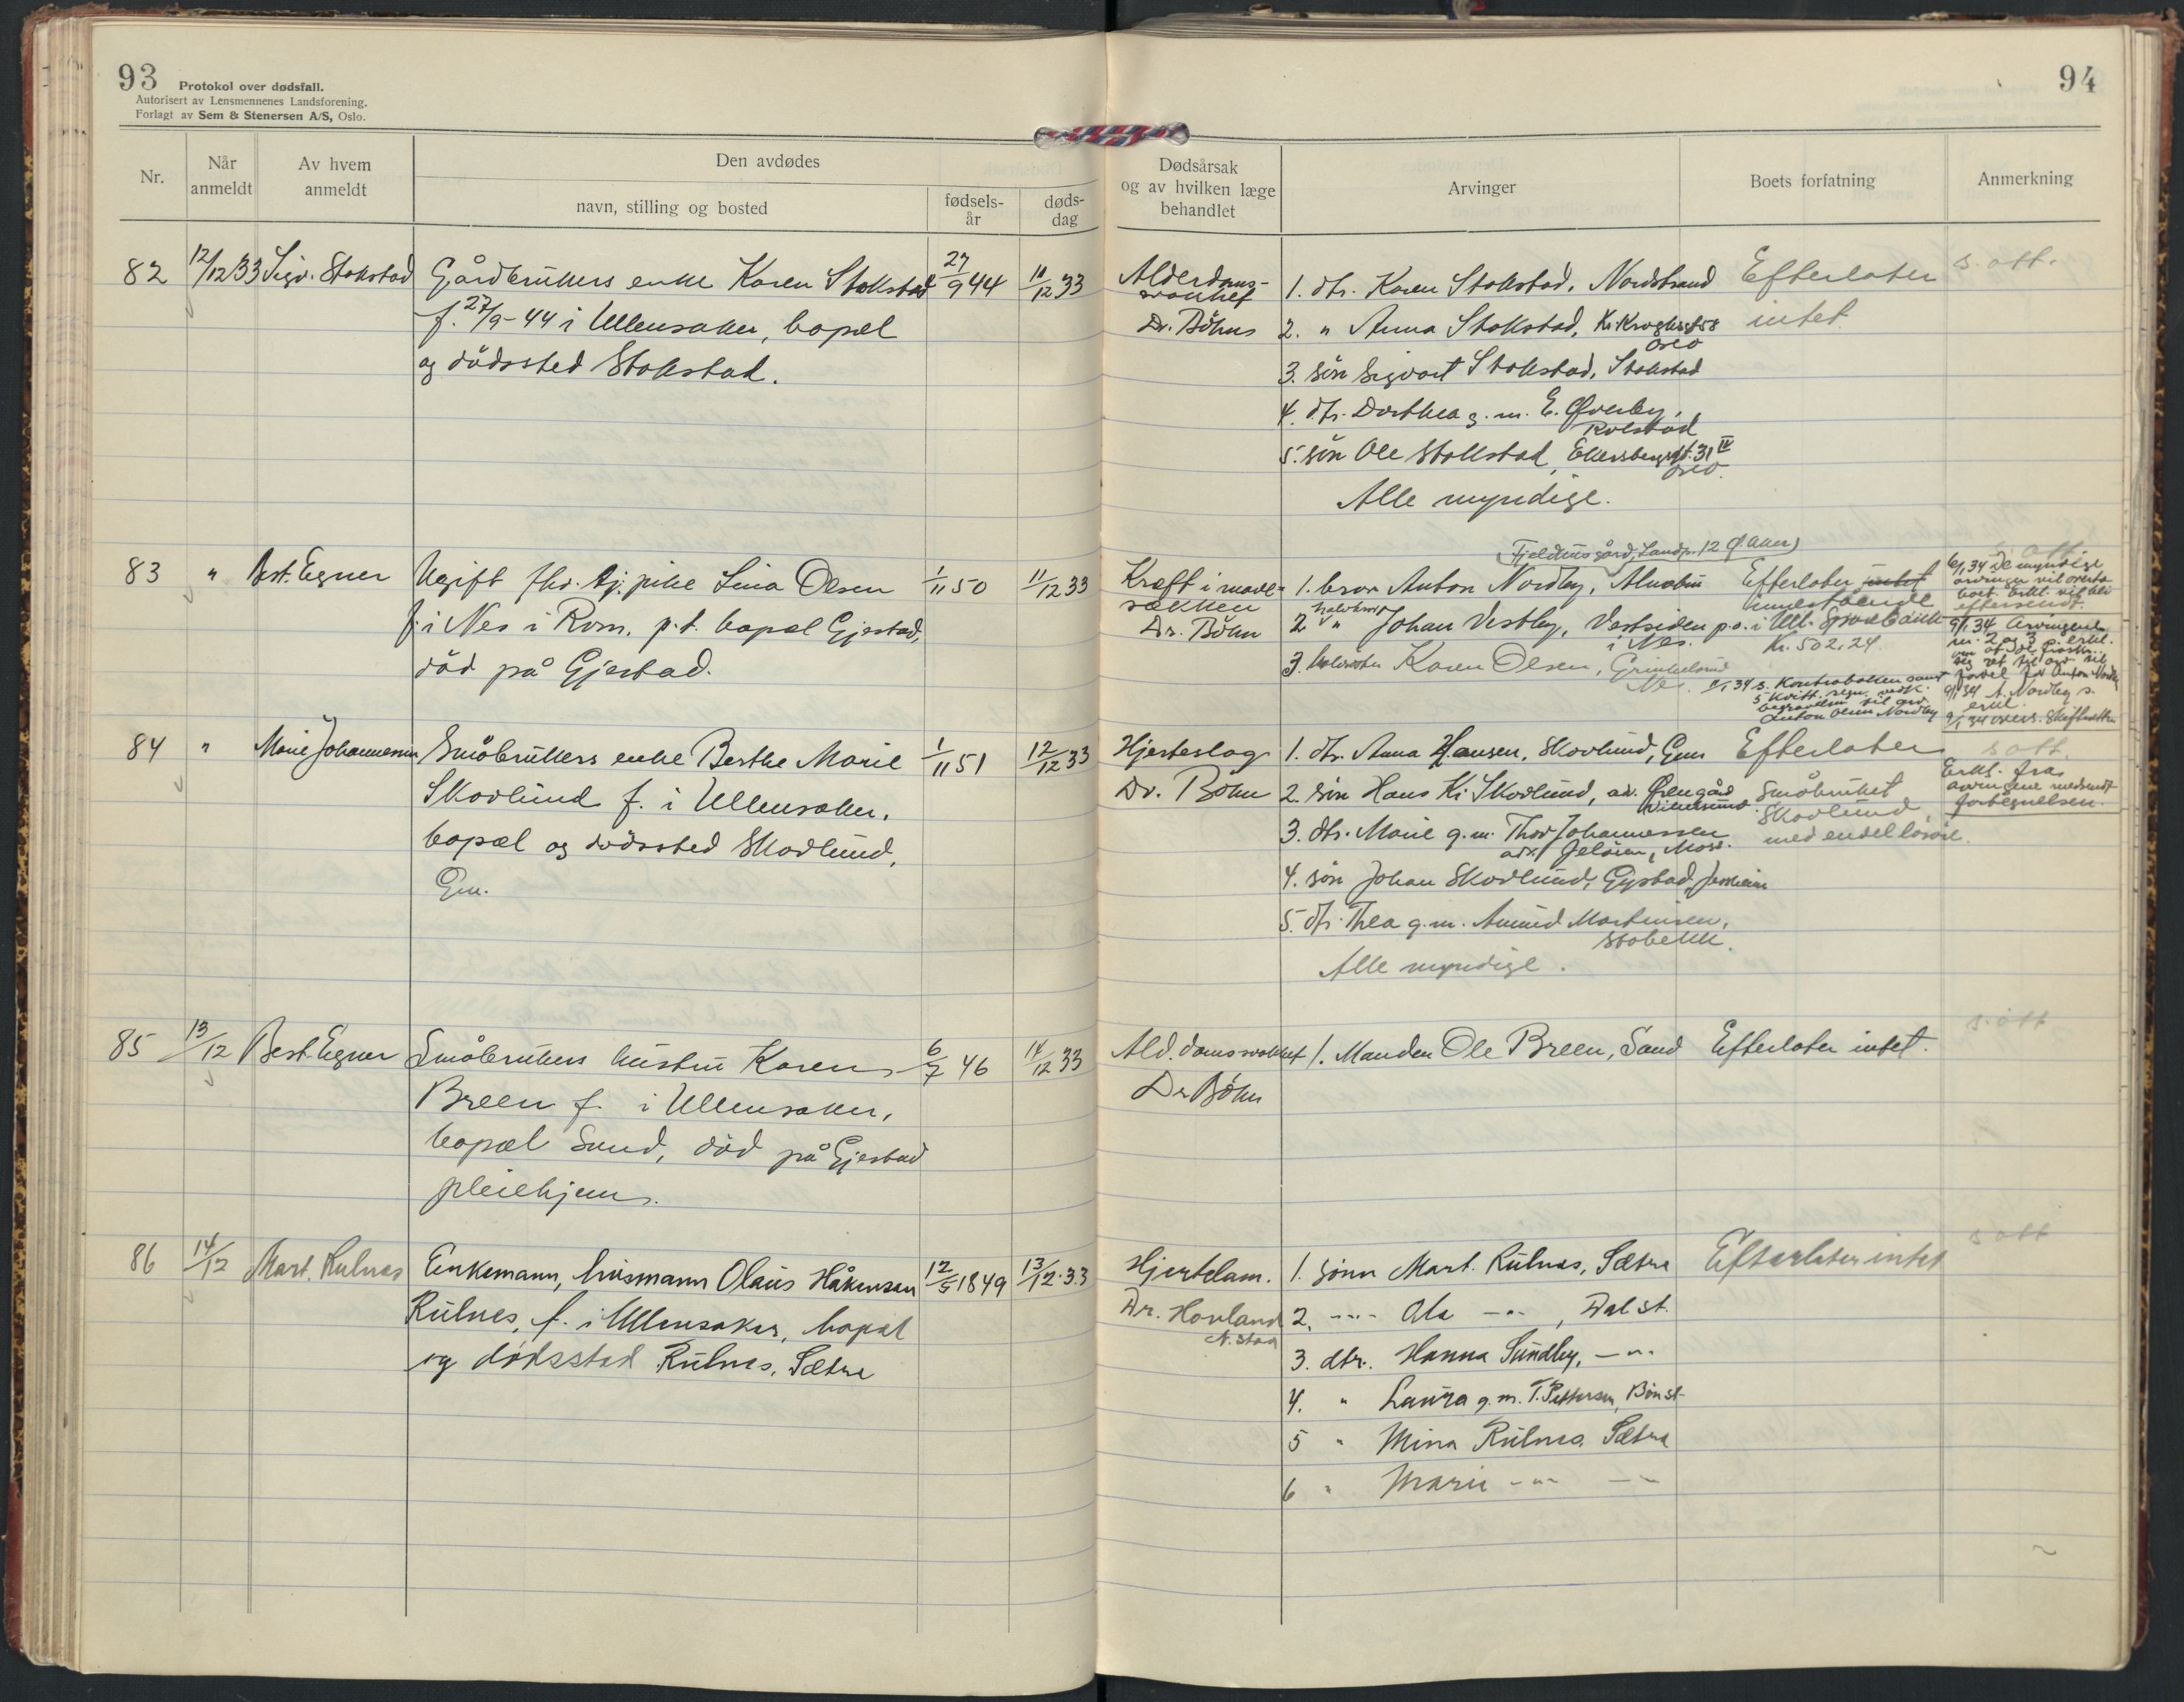 93 Protokol over dødsfall.
Autorisert av Lensmennenes Landsforening.
Forlagt av Sem & Stenersen A/S, Oslo.
94
Nr.
Når anmeldt
Av hvem anmeldt
Den avdødes
navn, stilling og bosted
fødsels-år
døds-dag
Dødsårsak og av hvilken læge behandlet
Arvinger
Boets forfatning
Anmerkning
82 12/12 33 Sigv. Stokstad Gårdbrukers enke Karen Stokstad 27/9 44 10/12 33
f. 27/9-44 i Ullensaker, bopæl
og dödssted Stokstad.
Alderdoms-
svakhet
Dr. Böhn
1. dtr. Karen Stokstad, Nordstrand
2. " Anna Stokstad, Kr. Kroghsgt 58
Oslo
3. sön Sigvart Stokstad, Stokstad
4. dtr. Dorthea g. m. E. Øverby,
Rolstad
5. sön Ole Stokstad, Ekersbergsgt. 31 IV
Oslo.
Alle myndige.
Efterlater
intet.
s. att.
83 " Best. Egner Ugift fhv. tj. pike Lina Olsen 1/11 50 11/12 33
f. i Nes i Rom. p.t. bopæl Gjestad,
död på Gjestad.
Kræft i mave-
sækken
Dr. Böhn
Fjeldhus gård, Landv. 12 Ø. Aker)
1. bror Anton Nordby, Alnabru
2 halvbror " Johan Vestby, Vestsiden p.o. i Ull.
i Nes.
3. halvsöster Karen Olsen,
Nes.
Efterlater intet
innestående
Sparebank
Kr. 502,24.
8/1 34 s. Kontraboken samt
5 kvitt. regn. vedk.
begravelsen til arv.
Anton Olsen Nordby
6/1 34 De myndige
arvinger vil overta
boet. Erkl. vil bli
eftersendt.
9/1 34 Arvingene
nr. 2 og 3 p. erkl.
om at de frasier
sig ret til arv til
fordel for Anton Nordby
9/1 34 A. Nordby s.
erkl.
9/1 34 overs. Skifteretten
84 " Marie Johannessen Småbrukers enke Berthe Marie 1/11 51 12/12 33
Skovlund f. i Ullensaker,
bopæl og dödssted Skovlund,
Gm.
Hjerteslag
Dr. Böhn
1. dtr. Anna Hansen, Skovlund, Gm
2. sön Hans Kr. Skovlund, ad. Ørengård
3. dtr. Marie g.m. Thor Johannessen
adr. Jelöien, Moss.
4. sön Johan Skovlund, Gystad, Jessheim
5. dtr. Thea g.m. Amund Martinsen,
Stabekk.
Alle myndige.
Efterlater
Småbruket
Skovlund
med endel lösöre.
s att.
Erkl. fra
arvingene medsendt
fortegnelsen.
85 13/12 Best. Egner Småbrukers hustru Karen 6/7 46 14/12 33
Breen f. i Ullensaker,
bopæl Sand, död på Gjestad
pleiehjem.
Ald. domssvakhet
Dr Böhn
1. Manden Ole Breen, Sand
Efterlater intet.
s. att
86 14/12 Mart. Rulnes Enkemann, husmann Olaus Håkensen 12/5 1849 13/12.33
Rulnes, f. i Ullensaker, bopæl
og dødsstad Rulnes, Sætre
Hjertelam.
Dr. Hovland
N. Stad
1. sønn Mart. Rulnes, Sætre
2. -"- Ole -"-, Dal st.
3. dtr. Hanna Sundby, -"-
4. " Laura g.m. T. Pettersen, Bön st.
5 " Mina Rulnes Sætre
6 " Marie -"- -"-
Efterlater intet
s att